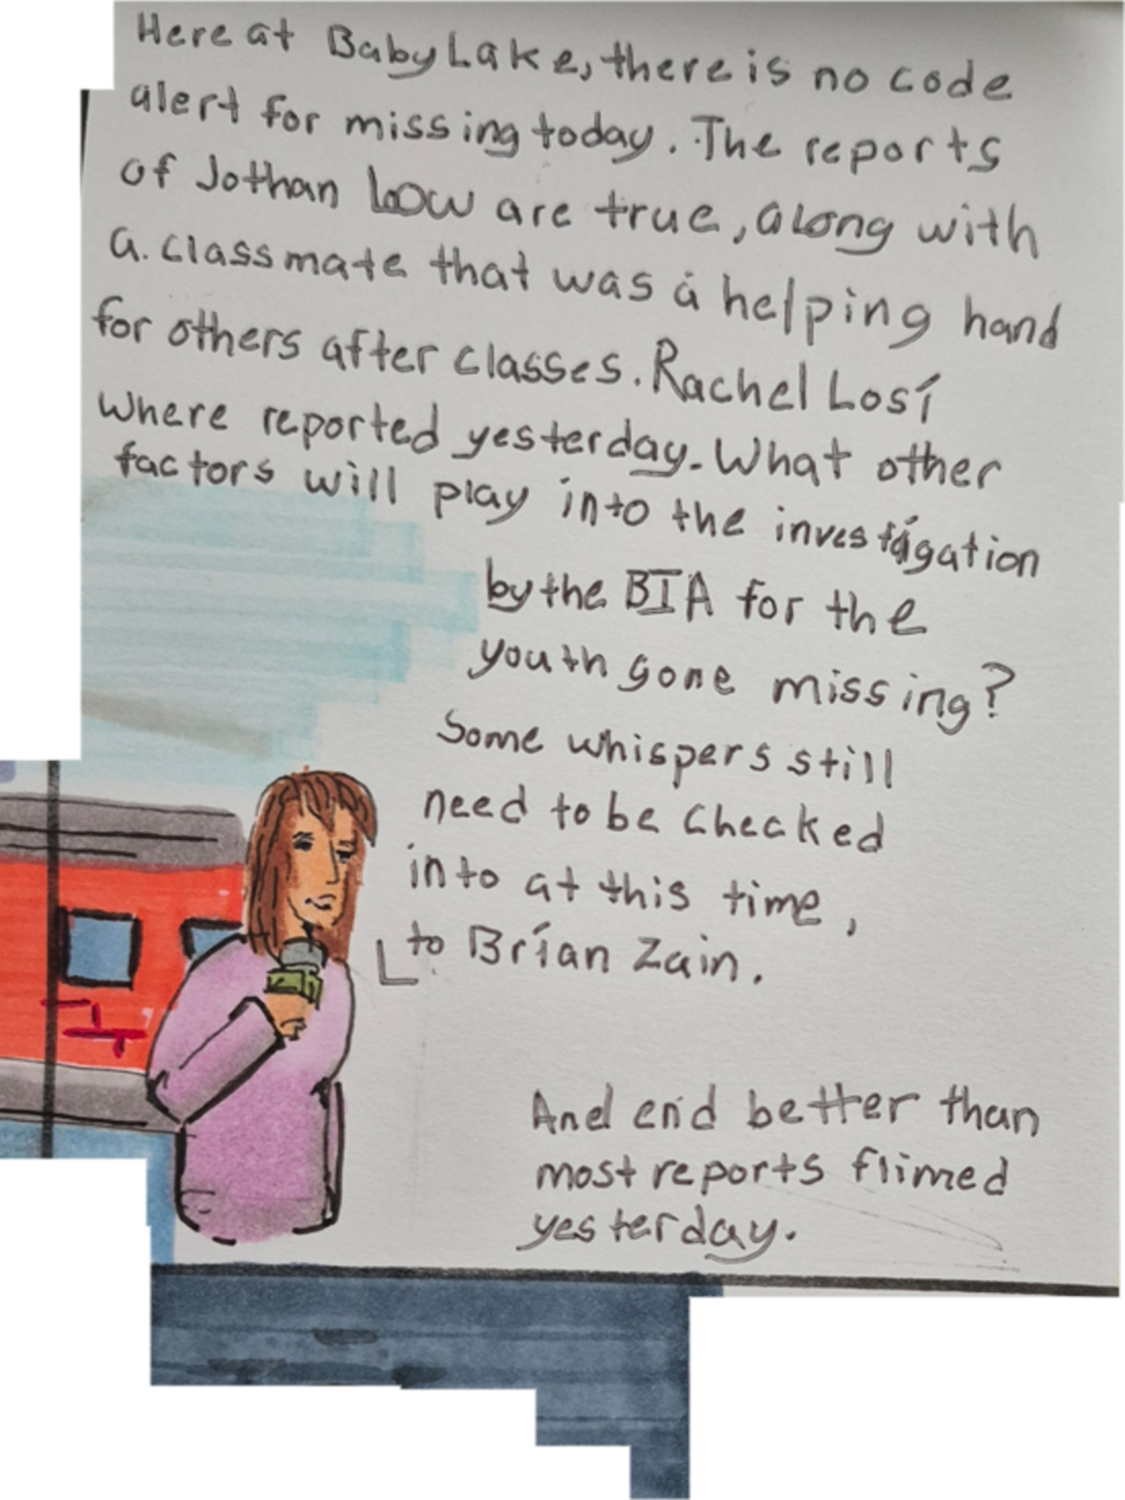 Here at Baby Lake, there is no code
alert for missing today. The reports
of Jothan Low are true, along with
a. classmate that was a helping hand
for others after classes. Rachel Losi
where reported yesterday. What other
factors will play into the investagation
by the BIA for the
youth gone missing?
Some whispers still
need to be checked
into at this time,
to Brian Zain.
And end better than
most reports flimed
yesterday.